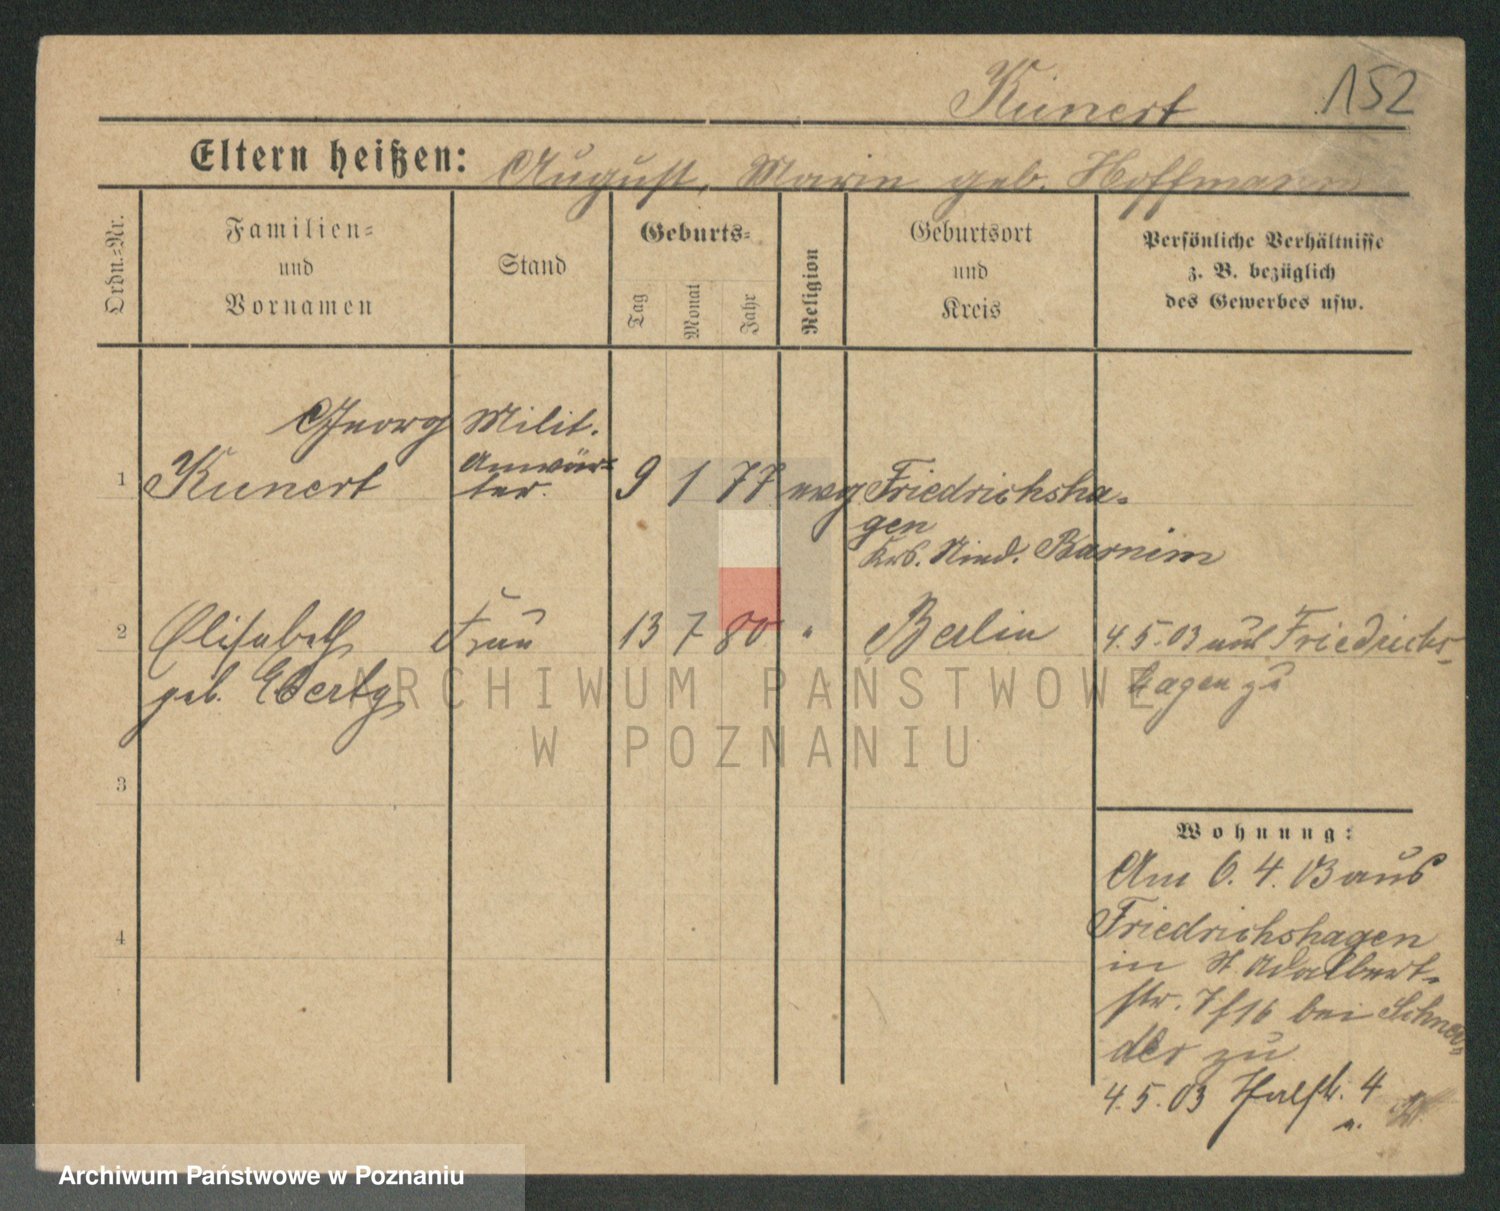 Kunert 152
Eltern heißen: August, Marie geb. Hoffmann
Ordn.-Nr.
Familien-
und
Vornamen
Stand
Geburts-
Tag
Monat
Jahr
Religion
Geburtsort
und
Kreis
Persönliche Verhältnisse
z. B. bezüglich
des Gewerbes usw.
Georg Milit.
1 Kunert Anwär-
ter. 9 1 77 evg Friedrichsha-
gen
Krs. Nied. Barnim
2 Elisabeth Frau 13 7 80 " Berlin 4.5.03 aus Friedrichs-
geb. Eberty hagen zu
ARCHIWUM PAŃSTWOWE
W POZNANIU
3
Wohnung:
Am 6. 4. 03 aus
4 Friedrichshagen
in St Adalbert-
str. 7/16 bei Schnei-
der zu
4.5.03 4
Archiwum Państwowe w Poznaniu